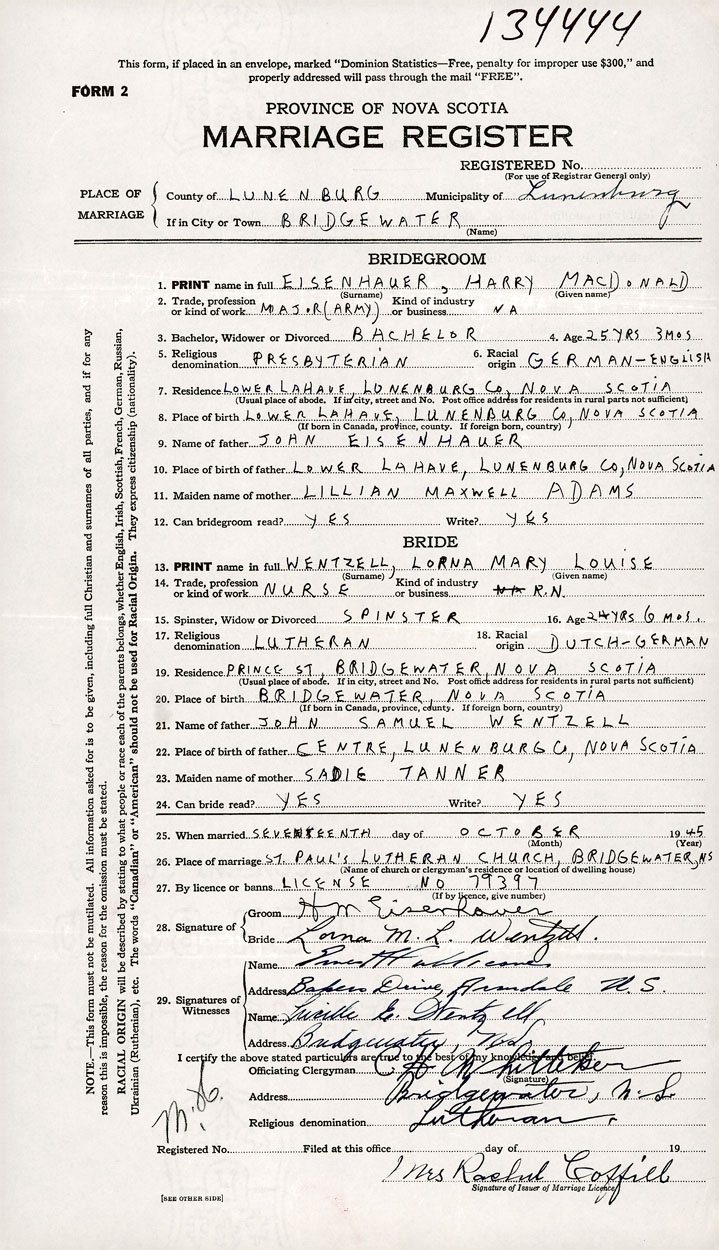 134444
This form, if placed in an envelope, marked “Dominion Statistics—Free, penalty for improper use $300,” and
properly addressed will pass through the mail “FREE”.
FORM 2
PROVINCE OF NOVA SCOTIA
MARRIAGE REGISTER
REGISTERED No.
(For use of Registrar General only)
PLACE OF MARRIAGE
County of LUNENBURG Municipality of Lunenburg
If in City or Town BRIDGEWATER
(Name)
BRIDEGROOM
1. PRINT name in full EISENHAUER, HARRY MACDONALD
(Surname) (Given name)
2. Trade, profession or kind of work MAJOR (ARMY) Kind of industry or business NA
3. Bachelor, Widower or Divorced BACHELOR 4. Age 25 YRS 3 MOS
5. Religious denomination PRESBYTERIAN 6. Racial origin GERMAN-ENGLISH
7. Residence LOWER LAHAVE, LUNENBURG CO, NOVA SCOTIA
(Usual place of abode. If in city, street and No. Post office address for residents in rural parts not sufficient)
8. Place of birth LOWER LAHAVE, LUNENBURG CO, NOVA SCOTIA
(If born in Canada, province, county. If foreign born, country)
9. Name of father JOHN EISENHAUER
10. Place of birth of father LOWER LAHAVE, LUNENBURG CO, NOVA SCOTIA
11. Maiden name of mother LILLIAN MAXWELL ADAMS
12. Can bridegroom read? YES Write? YES
BRIDE
13. PRINT name in full WENTZELL, LORNA MARY LOUISE
(Surname) (Given name)
14. Trade, profession or kind of work NURSE Kind of industry or business NA R.N.
15. Spinster, Widow or Divorced SPINSTER 16. Age 24 YRS 6 MOS.
17. Religious denomination LUTHERAN 18. Racial origin DUTCH-GERMAN
19. Residence PRINCE ST, BRIDGEWATER, NOVA SCOTIA
(Usual place of abode. If in city, street and No. Post office address for residents in rural parts not sufficient)
20. Place of birth BRIDGEWATER, NOVA SCOTIA
(If born in Canada, province, county. If foreign born, country)
21. Name of father JOHN SAMUEL WENTZELL
22. Place of birth of father CENTRE, LUNENBURG CO, NOVA SCOTIA
23. Maiden name of mother SADIE TANNER
24. Can bride read? YES Write? YES
25. When married SEVENTEENTH day of OCTOBER 1945
(Month) (Year)
26. Place of marriage ST. PAUL'S LUTHERAN CHURCH, BRIDGEWATER, NS
(Name of church or clergyman's residence or location of dwelling house)
27. By licence or banns LICENSE NO 79397
(If by licence, give number)
28. Signature of
Groom H M Eisenhauer
Bride Lorna M. L. Wentzell.
29. Signatures of Witnesses
Name Ernest
Address Bakers Drive, Armdale N.S.
Name Lucille G. Wentzell
Address Bridgewater, NS
I certify the above stated particulars are true to the best of my knowledge and belief.
Officiating Clergyman Whitteker
(Signature)
Address Bridgewater, N.S.
Religious denomination Lutheran
Registered No. Filed at this office day of 19
Mrs Rachel Coffill
Signature of Issuer of Marriage Licence
[SEE OTHER SIDE]
NOTE.—This form must not be mutilated. All information asked for is to be given, including full Christian and surnames of all parties, and if for any
reason this is impossible, the reason for the omission must be stated.
RACIAL ORIGIN will be described by stating to what people or race each of the parents belongs, whether English, Irish, Scottish, French, German, Russian,
Ukrainian (Ruthenian), etc. The words “Canadian” or “American” should not be used for Racial Origin. They express citizenship (nationality).